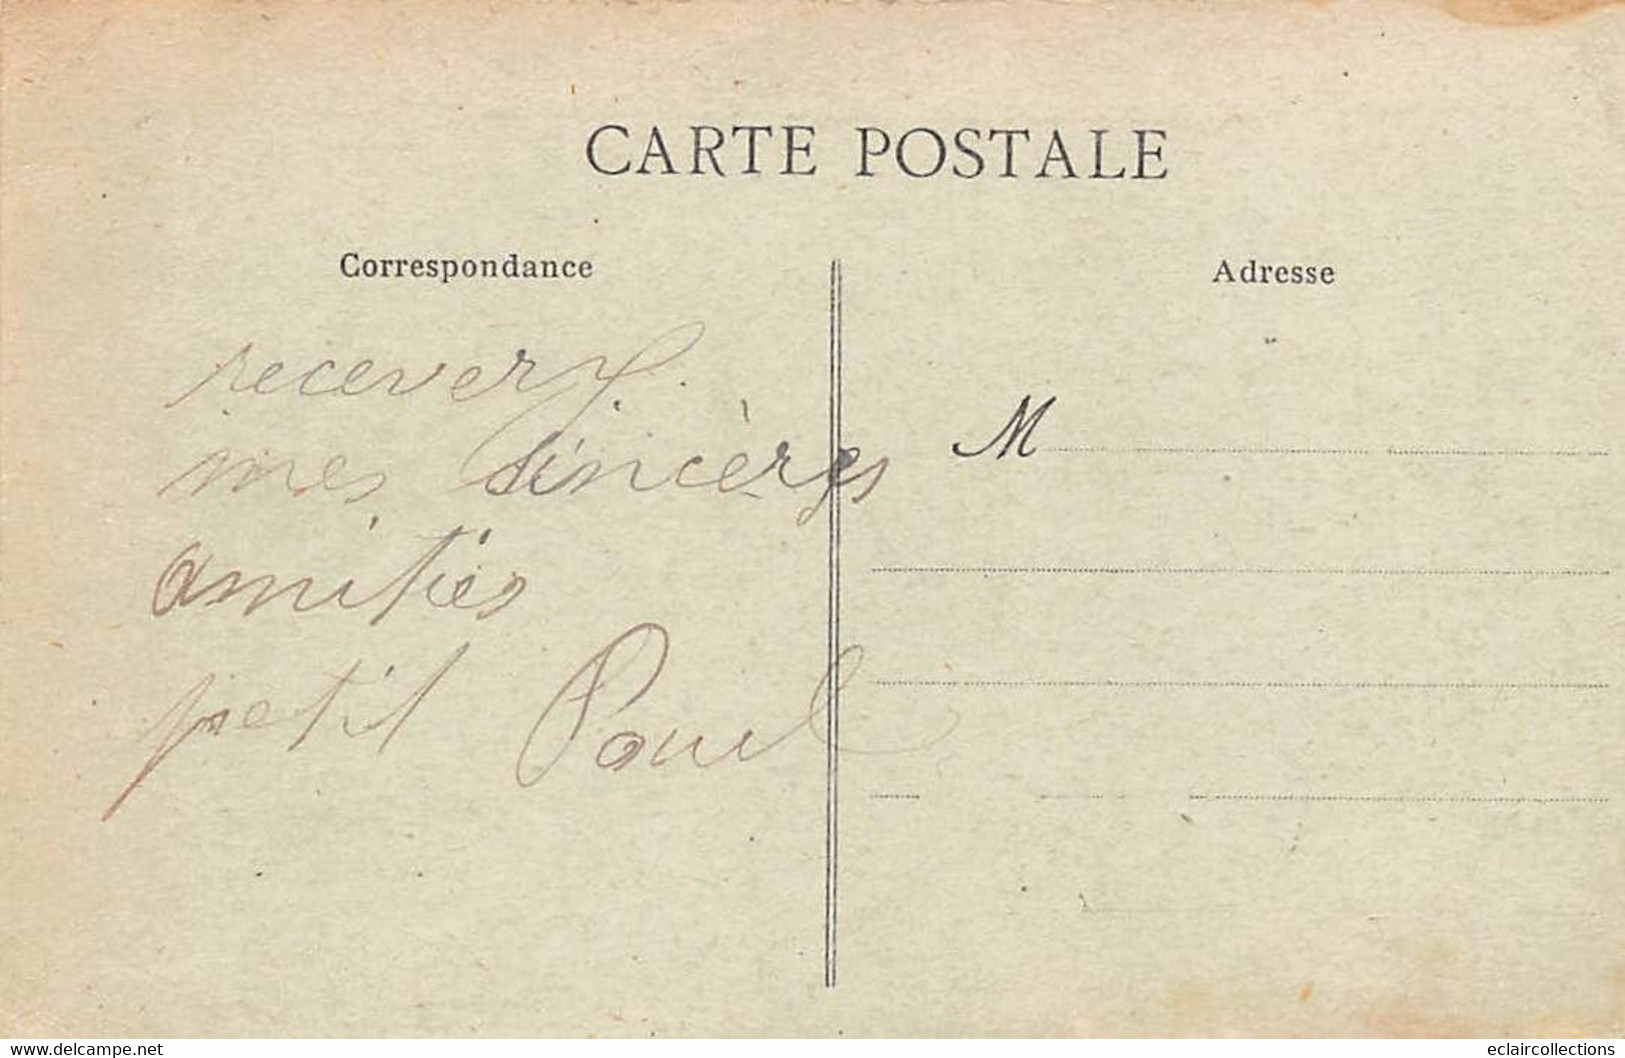 CARTE POSTALE
Correspondance
recever
mes sincères
amitiés
petit Paul
Adresse
M
www.delcampe.net
eclaircollections